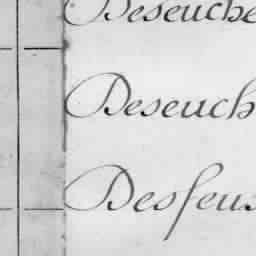 Deseuche
Deseuch
Desfeus